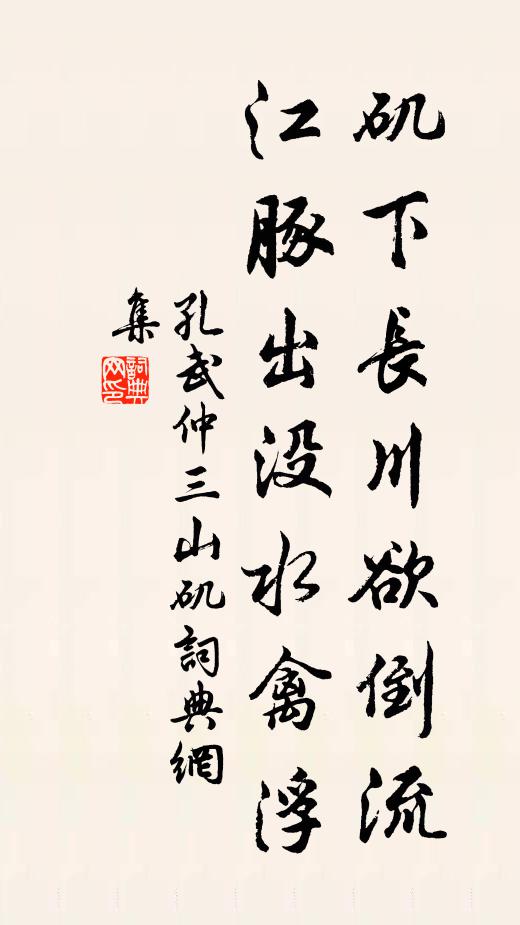 矶下長川欲倒流
江豚出没水禽浮
孔武仲三山矶詞典網
集
詞典网印